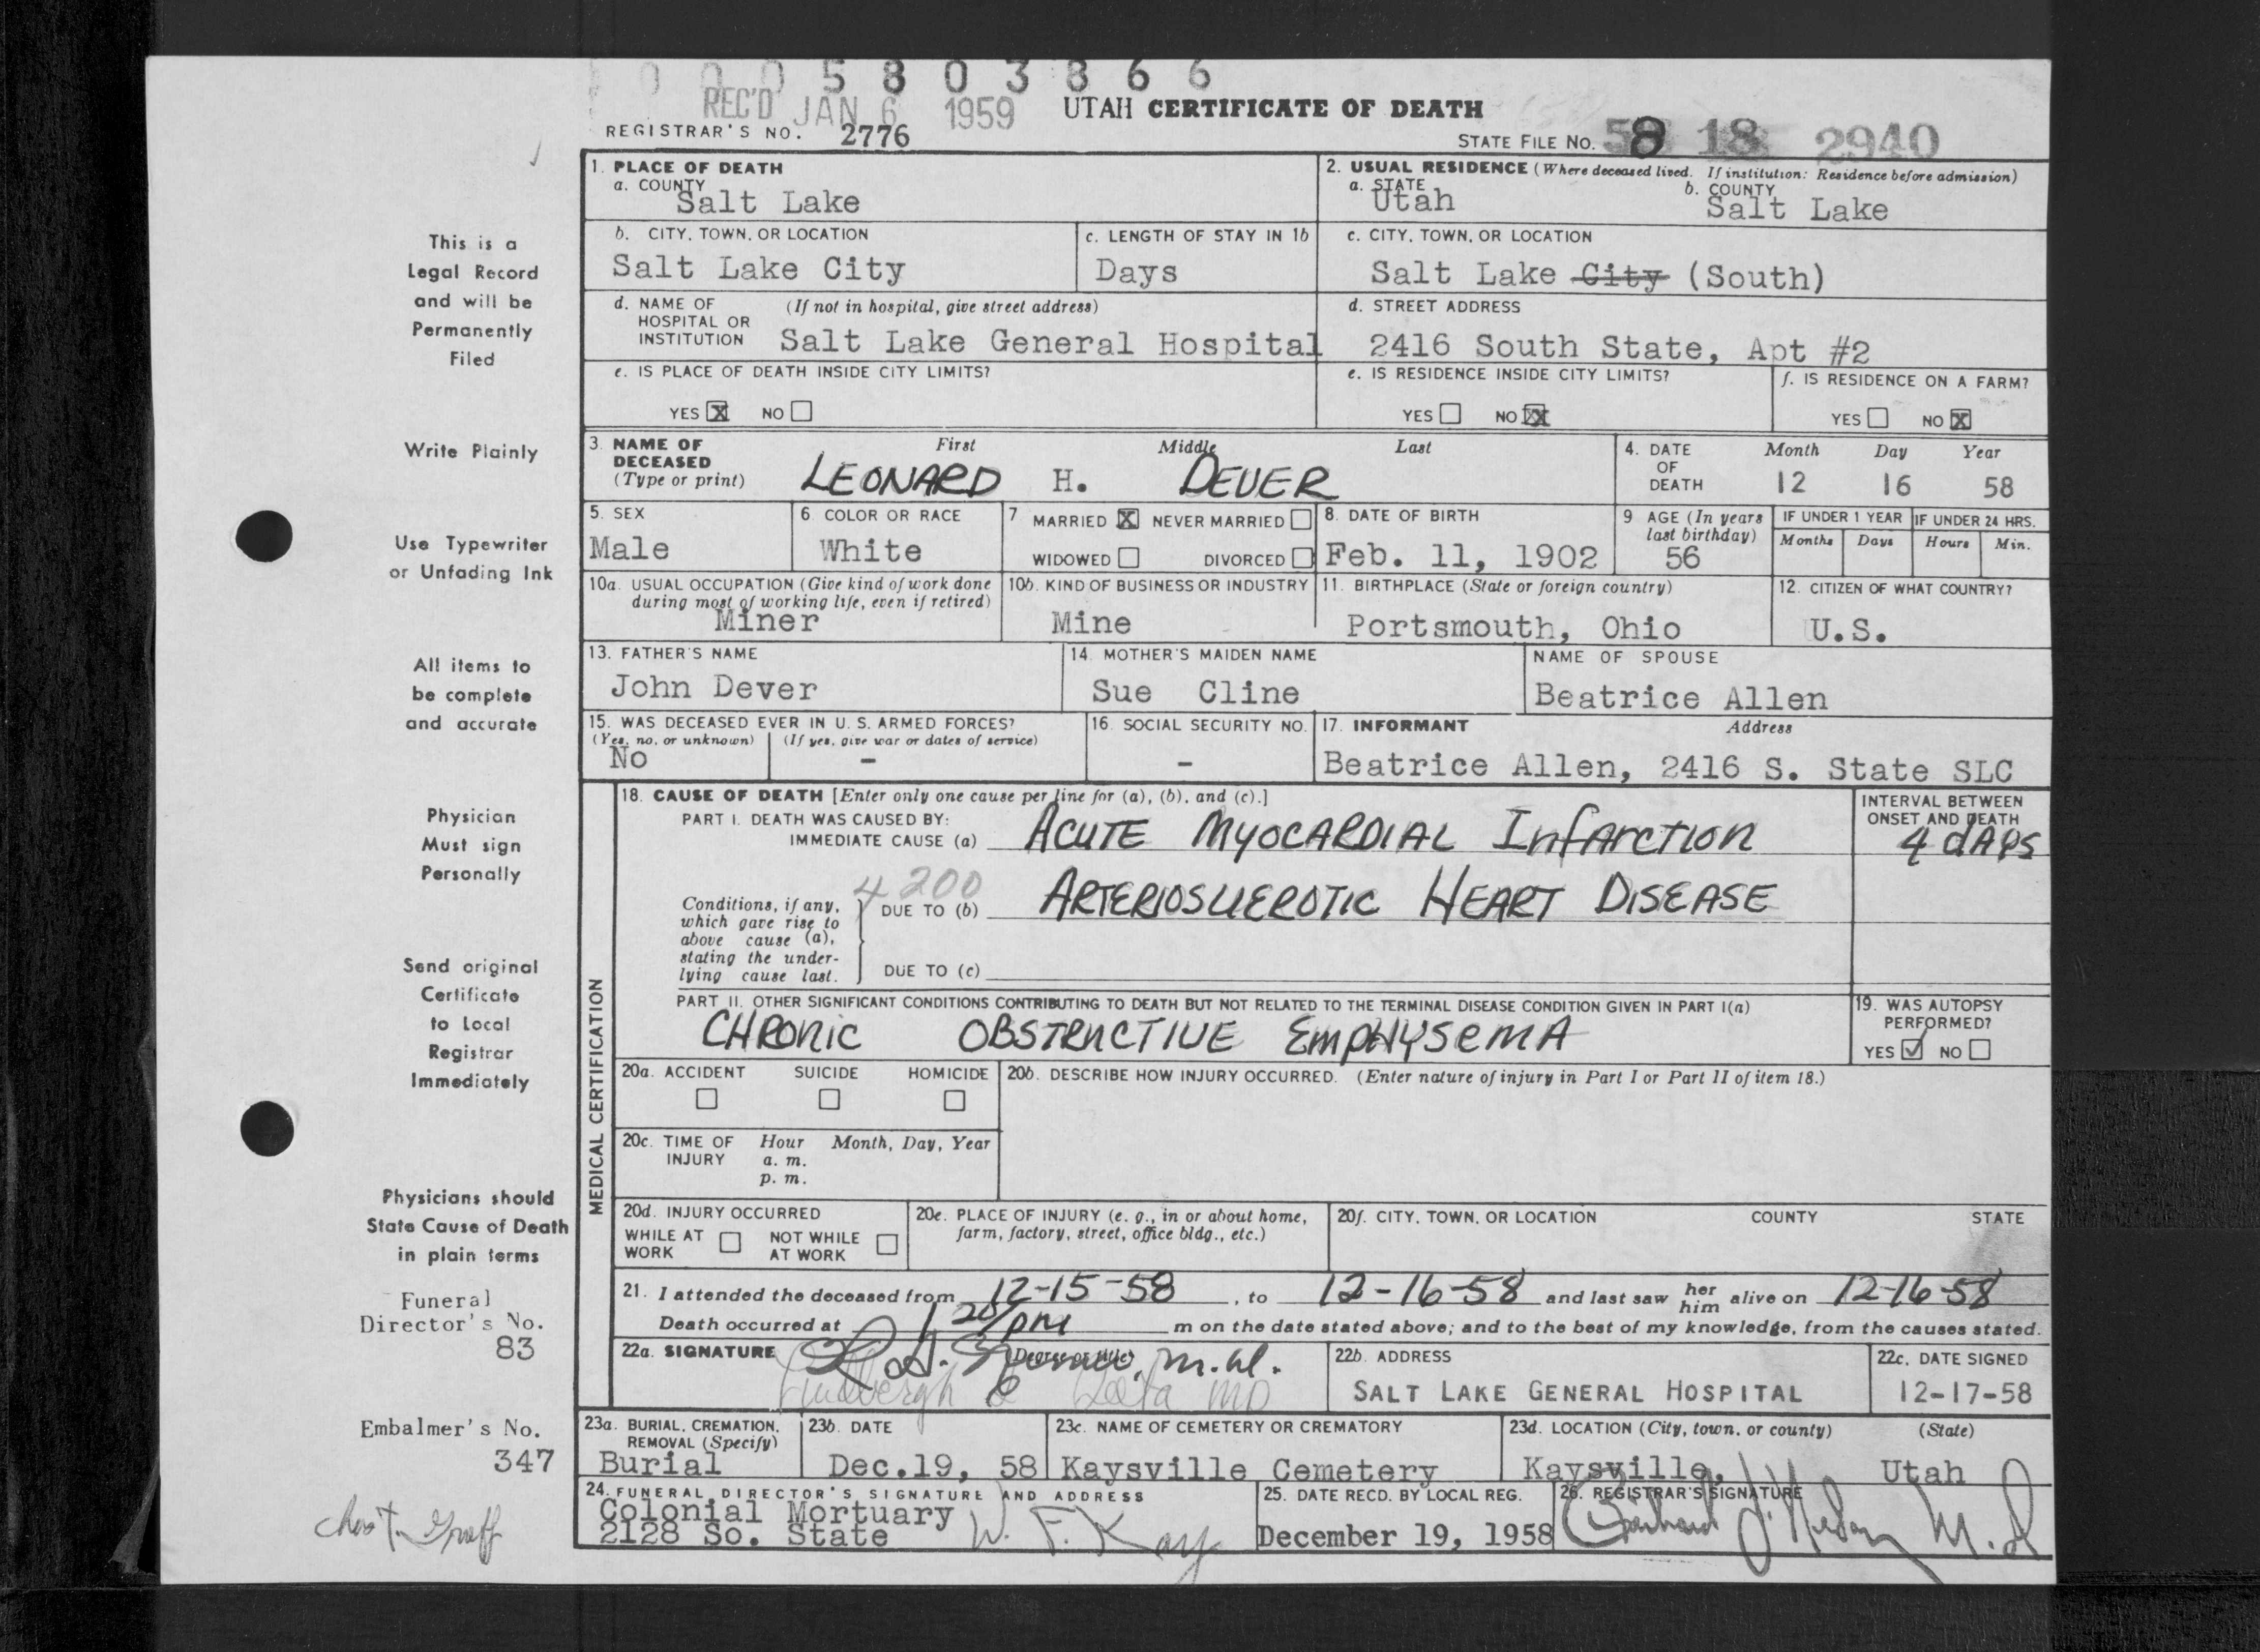 0 0 0 5 8 0 3 8 6 6
REC'D JAN 6 1959 UTAH CERTIFICATE OF DEATH
REGISTRAR'S NO. 2776
STATE FILE NO. 58 18 2940
This is a
Legal Record
and will be
Permanently
Filed
Write Plainly
Use Typewriter
or Unfading Ink
All items to
be complete
and accurate
Physician
Must sign
Personally
Send original
Certificate
to Local
Registrar
Immediately
Physicians should
State Cause of Death
in plain terms
Funeral
Director's No.
83
Embalmer's No.
347
1. PLACE OF DEATH
a. COUNTY
Salt Lake
2. USUAL RESIDENCE (Where deceased lived. If institution: Residence before admission)
a. STATE b. COUNTY
Utah Salt Lake
b. CITY, TOWN, OR LOCATION
Salt Lake City
c. LENGTH OF STAY IN 1b
Days
c. CITY, TOWN, OR LOCATION
Salt Lake City (South)
d. NAME OF (If not in hospital, give street address)
HOSPITAL OR
INSTITUTION Salt Lake General Hospital
d. STREET ADDRESS
2416 South State, Apt #2
e. IS PLACE OF DEATH INSIDE CITY LIMITS?
YES X NO
e. IS RESIDENCE INSIDE CITY LIMITS?
YES NO XX
f. IS RESIDENCE ON A FARM?
YES NO X
3. NAME OF First Middle Last
DECEASED
(Type or print) LEONARD H. DEVER
4. DATE Month Day Year
OF
DEATH 12 16 58
5. SEX
Male
6. COLOR OR RACE
White
7 MARRIED X NEVER MARRIED
WIDOWED DIVORCED
8. DATE OF BIRTH
Feb. 11, 1902
9 AGE (In years
last birthday)
56
IF UNDER 1 YEAR IF UNDER 24 HRS.
Months Days Hours Min.
10a. USUAL OCCUPATION (Give kind of work done
during most of working life, even if retired)
Miner
10b. KIND OF BUSINESS OR INDUSTRY
Mine
11. BIRTHPLACE (State or foreign country)
Portsmouth, Ohio
12. CITIZEN OF WHAT COUNTRY?
U.S.
13. FATHER'S NAME
John Dever
14. MOTHER'S MAIDEN NAME
Sue Cline
NAME OF SPOUSE
Beatrice Allen
15. WAS DECEASED EVER IN U. S. ARMED FORCES?
(Yes, no, or unknown) (If yes, give war or dates of service)
No -
16. SOCIAL SECURITY NO.
-
17. INFORMANT Address
Beatrice Allen, 2416 S. State SLC
MEDICAL CERTIFICATION
18. CAUSE OF DEATH [Enter only one cause per line for (a), (b), and (c).]
PART I. DEATH WAS CAUSED BY:
IMMEDIATE CAUSE (a) ACUTE MYOCARDIAL INFARCTION
INTERVAL BETWEEN
ONSET AND DEATH
4 dAYS
4200
Conditions, if any,
which gave rise to
above cause (a),
stating the under-
lying cause last.
DUE TO (b) ARTERIOSCLEROTIC HEART DISEASE
DUE TO (c)
PART II. OTHER SIGNIFICANT CONDITIONS CONTRIBUTING TO DEATH BUT NOT RELATED TO THE TERMINAL DISEASE CONDITION GIVEN IN PART I(a)
CHRONIC OBSTRUCTIVE EMPHYSEMA
19. WAS AUTOPSY
PERFORMED?
YES ✓ NO
20a. ACCIDENT SUICIDE HOMICIDE
20b. DESCRIBE HOW INJURY OCCURRED. (Enter nature of injury in Part I or Part II of item 18.)
20c. TIME OF Hour Month, Day, Year
INJURY a. m.
p. m.
20d. INJURY OCCURRED
WHILE AT NOT WHILE
WORK AT WORK
20e. PLACE OF INJURY (e. g., in or about home,
farm, factory, street, office bldg., etc.)
20f. CITY, TOWN, OR LOCATION COUNTY STATE
21. I attended the deceased from 12-15-58, to 12-16-58 and last saw her him alive on 12-16-58
Death occurred at 1 20/PM m on the date stated above; and to the best of my knowledge, from the causes stated.
22a. SIGNATURE (Degree or title) M.D.
MD
22b. ADDRESS
SALT LAKE GENERAL HOSPITAL
22c. DATE SIGNED
12-17-58
23a. BURIAL, CREMATION,
REMOVAL (Specify)
Burial
23b. DATE
Dec.19, 58
23c. NAME OF CEMETERY OR CREMATORY
Kaysville Cemetery
23d. LOCATION (City, town, or county) (State)
Kaysville, Utah
24. FUNERAL DIRECTOR'S SIGNATURE AND ADDRESS
Colonial Mortuary
2128 So. State W. F. Kay
25. DATE RECD. BY LOCAL REG.
December 19, 1958
26. REGISTRAR'S SIGNATURE
M.D